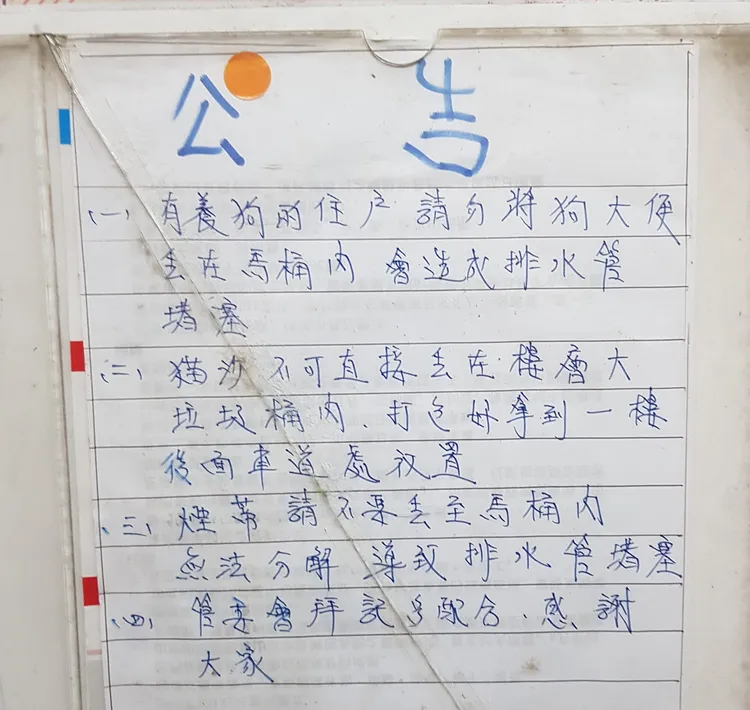 公告
(一) 有養狗的住戶 請勿將狗大便
丟在馬桶內 會造成排水管
堵塞
(二) 猫沙不可直接丟在樓層大
垃圾桶內、打包好拿到一樓
後面車道處放置
(三) 煙蒂請不要丟至馬桶內
無法分解 導致排水管堵塞
(四) 管委會拜託多配合、感謝
大家